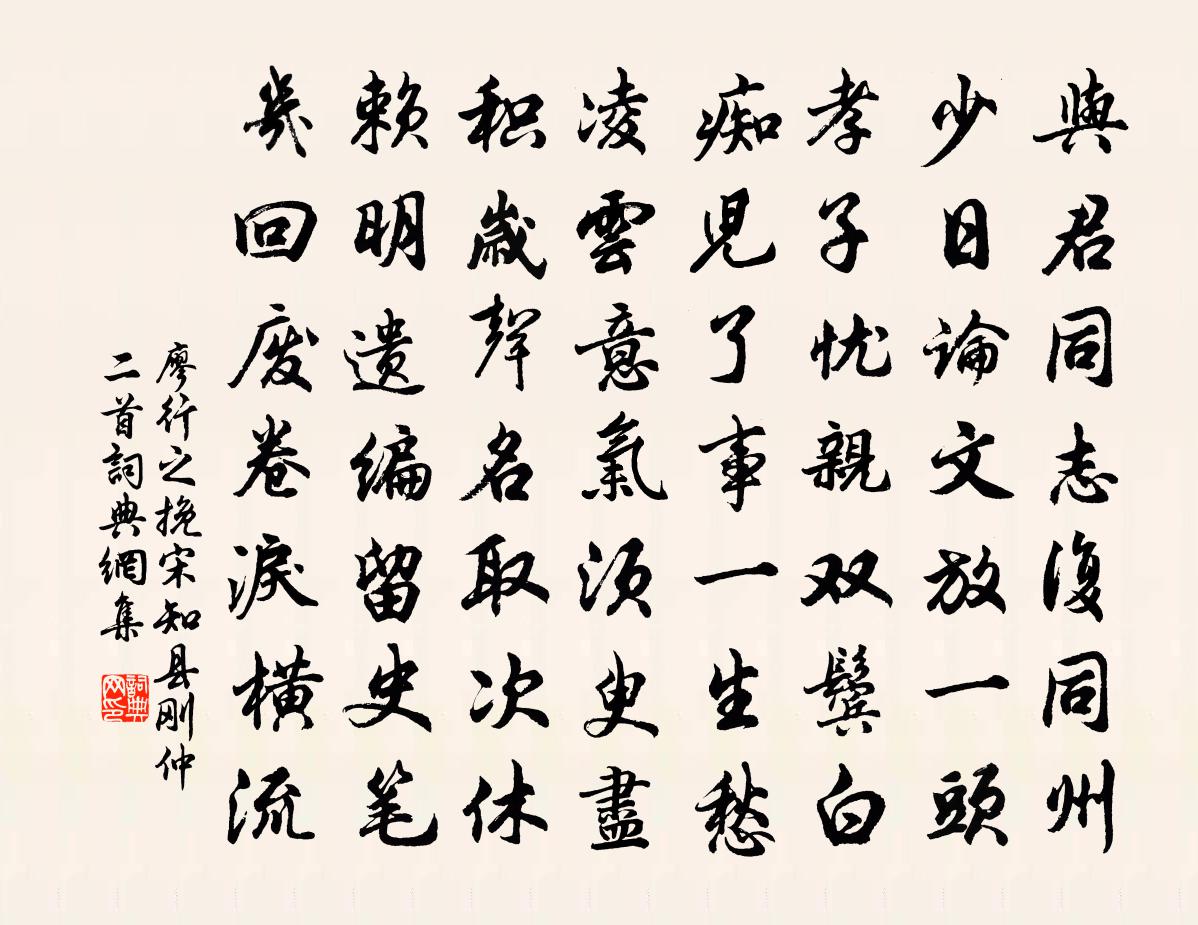 與君同志復同州
少日論文放一頭
孝子忧親双鬓白
痴児了事一生愁
凌雲意氣須臾盡
积歲聲名取次休
赖明遗编留史笔
幾回废卷淚横流
廖行之挽宋知县刚仲
二首詞典網集
詞典网印